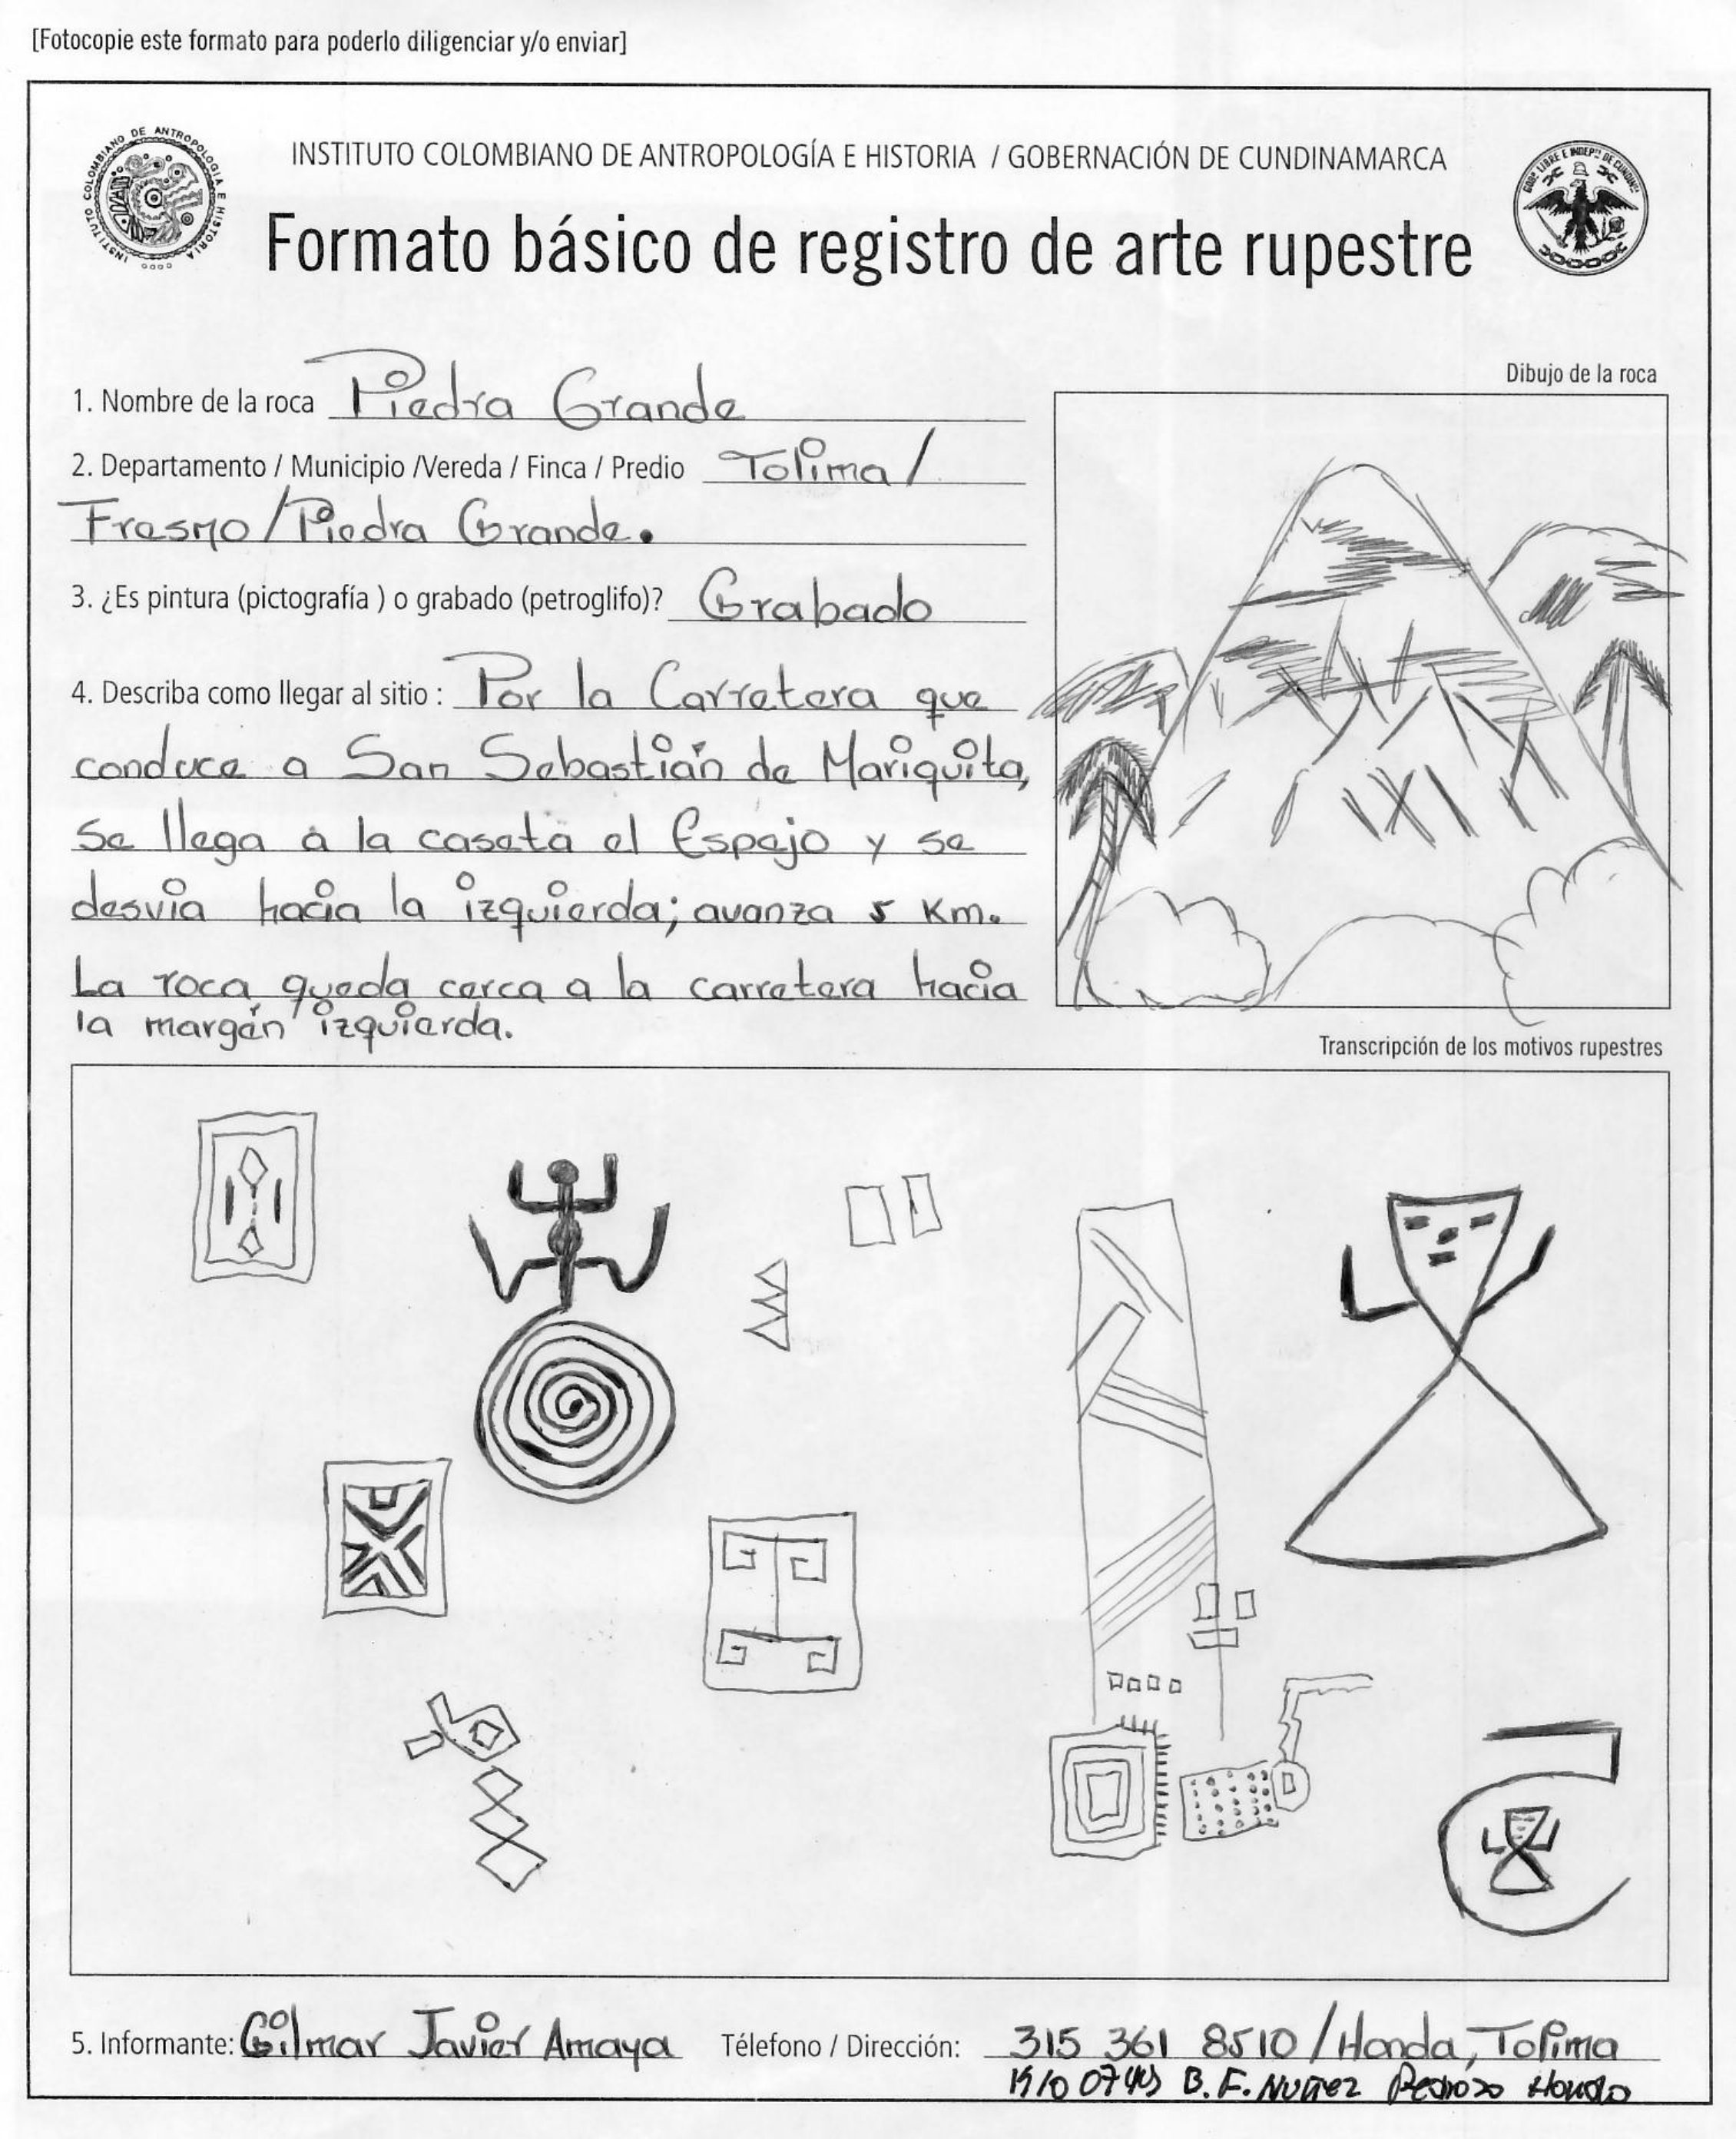 [Fotocopie este formato para poderlo diligenciar y/o enviar]
INSTITUTO COLOMBIANO DE ANTROPOLOGÍA E HISTORIA
INSTITUTO COLOMBIANO DE ANTROPOLOGÍA E HISTORIA / GOBERNACIÓN DE CUNDINAMARCA
Formato básico de registro de arte rupestre
Dibujo de la roca
1. Nombre de la roca Piedra Grande
2. Departamento / Municipio /Vereda / Finca / Predio Tolima /
Fresno / Piedra Grande.
3. ¿Es pintura (pictografía ) o grabado (petroglifo)? Grabado
4. Describa como llegar al sitio : Por la Carretera que
conduce a San Sebastián de Mariquita,
se llega a la caseta el Espejo y se
desvia hacia la izquierda; avanza 5 Km.
La roca queda cerca a la carretera hacia
la margén izquierda.
Transcripción de los motivos rupestres
5. Informante: Gilmar Javier Amaya Télefono / Dirección: 315 361 8510 / Honda, Tolima
B. F. Nuñez Pedroso Honda